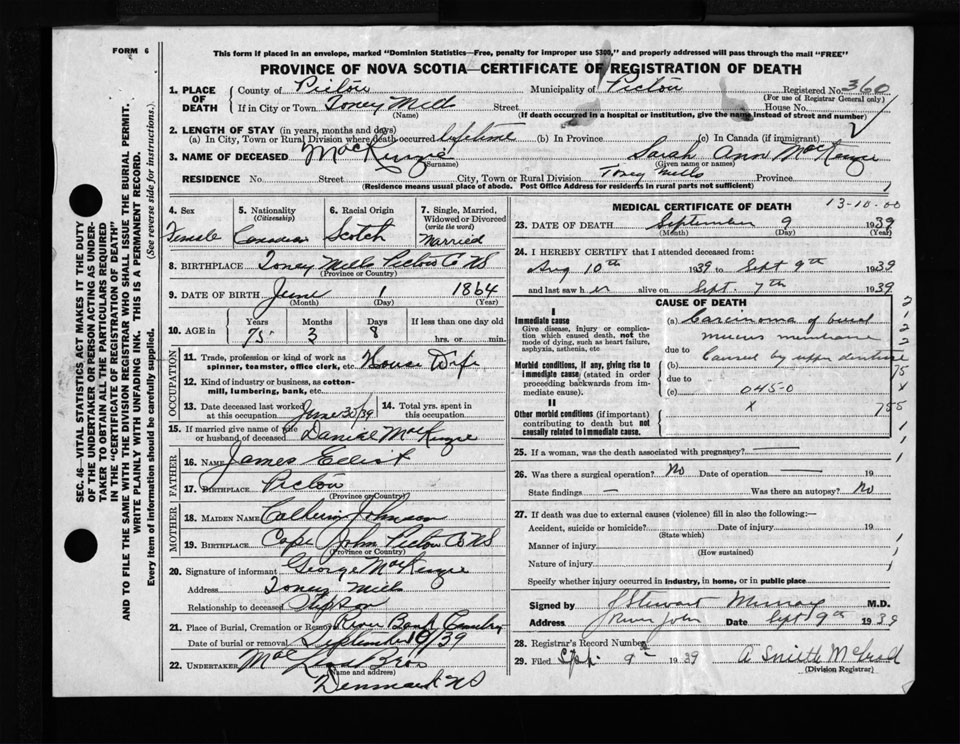 FORM 6
This form if placed in an envelope, marked "Dominion Statistics—Free, penalty for improper use $300," and properly addressed will pass through the mail "FREE"
PROVINCE OF NOVA SCOTIA—CERTIFICATE OF REGISTRATION OF DEATH
1. PLACE OF DEATH
County of Pictou Municipality of Pictou Registered No. 360
(For use of Registrar General only)
If in City or Town Toney Mills Street House No.
(Name) (If death occurred in a hospital or institution, give the name instead of street and number)
2. LENGTH OF STAY (in years, months and days)
(a) In City, Town or Rural Division where death occurred lifetime (b) In Province (c) In Canada (if immigrant)
3. NAME OF DECEASED MacKenzie Sarah Ann MacKenzie
(Surname) (Given name or names)
RESIDENCE No. Street City, Town or Rural Division Toney Mills Province
(Residence means usual place of abode. Post Office Address for residents in rural parts not sufficient)
4. Sex Female
5. Nationality (Citizenship) Canadian
6. Racial Origin Scotch
7. Single, Married, Widowed or Divorced (write the word) Married
8. BIRTHPLACE Toney Mills Pictou Co NS
(Province or Country)
9. DATE OF BIRTH June 1 1864
(Month) (Day) (Year)
10. AGE in Years Months Days If less than one day old
75 3 8 hrs. or min.
OCCUPATION
11. Trade, profession or kind of work as spinner, teamster, office clerk, etc. House Wife
12. Kind of industry or business, as cotton-mill, lumbering, bank, etc.
13. Date deceased last worked at this occupation June 30/39
14. Total yrs. spent in this occupation.
15. If married give name of wife or husband of deceased Danial MacKenzie
FATHER
16. NAME James
17. BIRTHPLACE Pictou
(Province or Country)
MOTHER
18. MAIDEN NAME Catherin Johnson
19. BIRTHPLACE Cape John Pictou Co NS
(Province or Country)
20. Signature of informant George MacKenzie
Address Toney Mills
Relationship to deceased Stepson
21. Place of Burial, Cremation or Removal River Bank Cemetery
Date of burial or removal September 10/39
22. UNDERTAKER Mac Bros
(Name and address)
Denmark NS
MEDICAL CERTIFICATE OF DEATH 13-10-00
23. DATE OF DEATH September 9 1939
(Month) (Day) (Year)
24. I HEREBY CERTIFY that I attended deceased from:
Aug 10th 1939 to Sept 9th 1939
and last saw her alive on Sept. 7th 1939
CAUSE OF DEATH
I
Immediate cause
Give disease, injury or complication which caused death, not the mode of dying, such as heart failure, asphyxia, asthenia, etc
(a) Carcinoma of
mucus membrane
due to
Morbid conditions, if any, giving rise to immediate cause (stated in order proceeding backwards from immediate cause).
(b) Caused by upper denture
due to
(c) 045-0
II
Other morbid conditions (if important) contributing to death but not causally related to immediate cause.
x 755
25. If a woman, was the death associated with pregnancy? —
26. Was there a surgical operation? No Date of operation — 19
State findings — Was there an autopsy? No
27. If death was due to external causes (violence) fill in also the following:—
Accident, suicide or homicide? Date of injury 19
(State which)
Manner of injury
(How sustained)
Nature of injury
Specify whether injury occurred in industry, in home, or in public place
Signed by J Stewart Murray M.D.
Address River John Date Sept 9th 1939
28. Registrar's Record Number
29. Filed Sept. 9 1939 A Smith
(Division Registrar)
SEC. 46—VITAL STATISTICS ACT MAKES IT THE DUTY
OF THE UNDERTAKER OR PERSON ACTING AS UNDERTAKER TO OBTAIN ALL THE PARTICULARS REQUIRED
IN THE "CERTIFICATE OF REGISTRATION OF DEATH"
AND TO FILE THE SAME WITH THE DIVISION REGISTRAR WHO SHALL ISSUE THE BURIAL PERMIT.
WRITE PLAINLY WITH UNFADING INK. THIS IS A PERMANENT RECORD.
Every item of information should be carefully supplied. (See reverse side for instructions.)